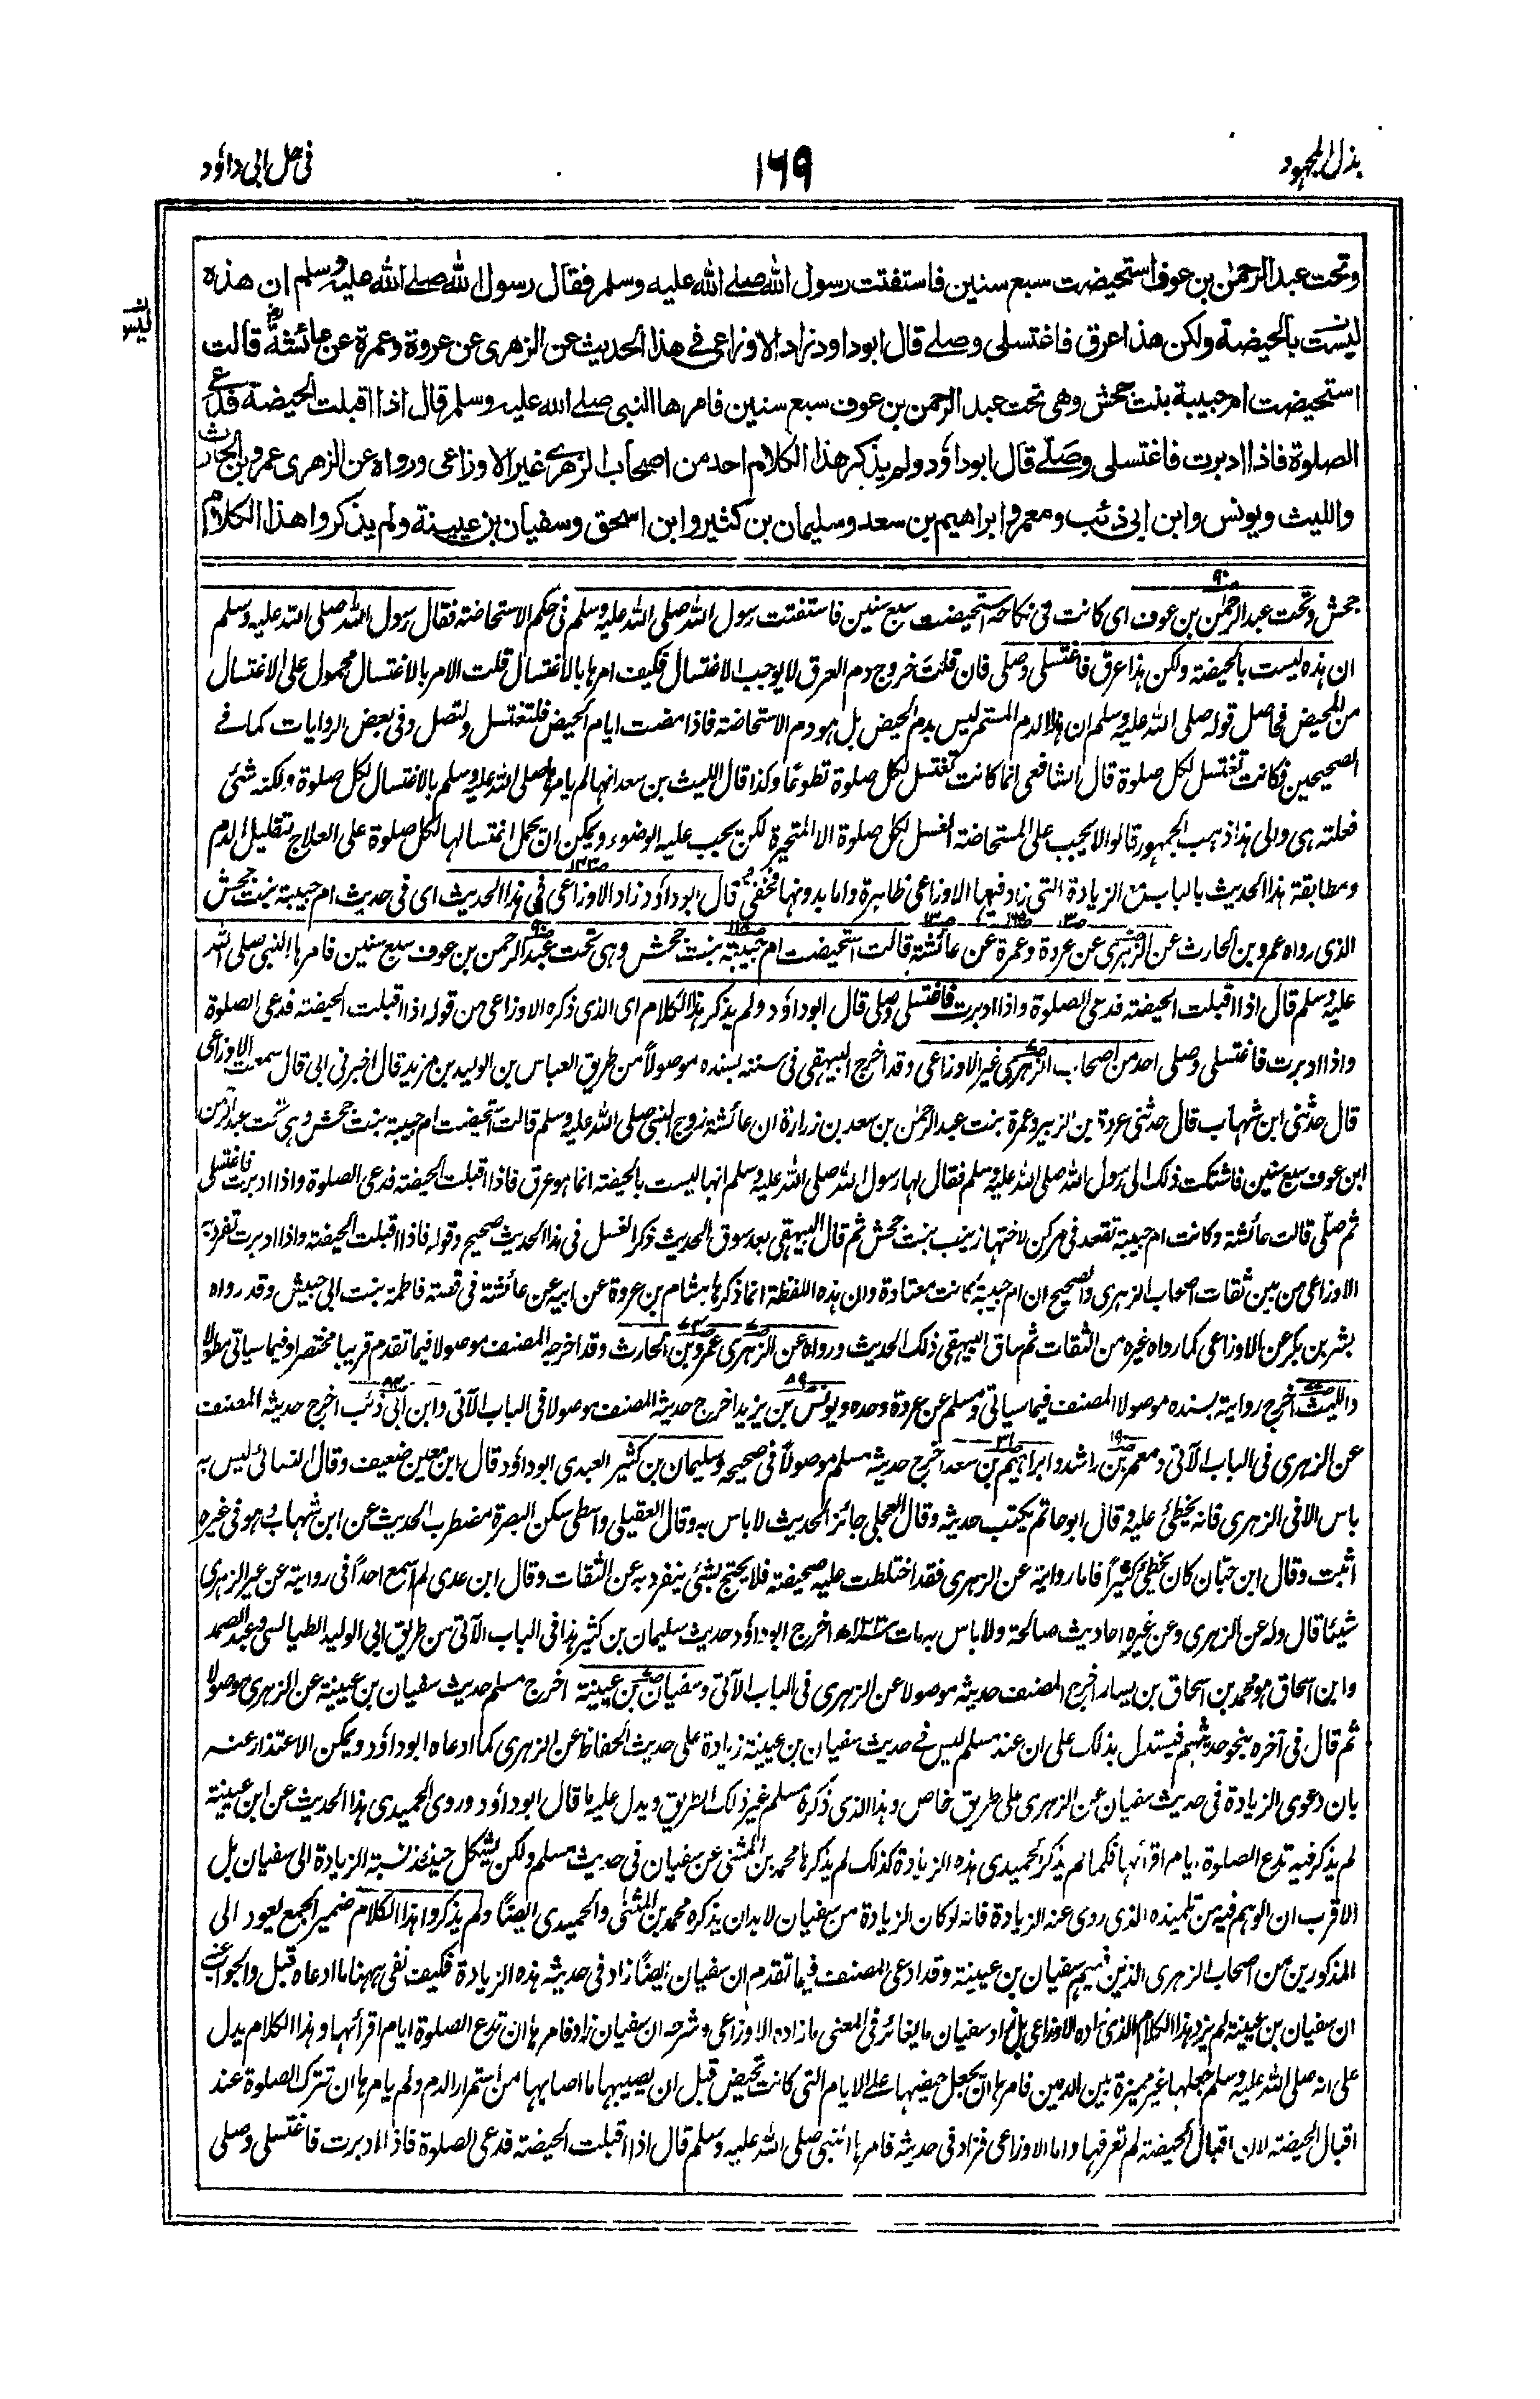 بذل المجهود
١٦٩
في حل ابي داؤد
وتحت عبد الرحمٰن بن عوف استحيضت سبع سنين فاستفتت رسول الله صلے الله عليه وسلم فقال رسول الله صلے الله عليه وسلم ان هذه
ليست بالحيضة ولكن هذا عرق فاغتسلي وصلے قال ابو داود زاد الاوزاعي في هذا الحديث عن الزهري عن عروة وعمرة عن عائشة قالت
ليس
استحيضت ام حبيبة بنت جحش وهي تحت عبد الرحمن بن عوف سبع سنين فامرها النبي صلے الله عليه وسلم قال اذا اقبلت الحيضة فدعي
الصلوة فاذا ادبرت فاغتسلي وصلے قال ابو داؤد ولم يذكر هذا الكلام احد من اصحاب الزهرے غير الاوزاعي ورواه عن الزهري عمرو بن الحارث
والليث ويونس وابن ابي ذئب ومعمر وابراهيم بن سعد وسليمان بن كثير وابن اسحق وسفيان بن عيينة ولم يذكروا هذا الكلام
جحش وتحت عبد الرحمٰن بن عوف اي كانت في نكاحه استحيضت سبع سنين فاستفتت رسول الله صلى الله عليه وسلم في حكم الاستحاضة فقال رسول الله صلى الله عليه وسلم
ان هذه ليست بالحيضة ولكن هذا عرق فاغتسلي وصلى فان قلت خروج دم العرق لا يوجب الاغتسال فكيف امرها بالاغتسال قلت الامر بالاغتسال محمول على الاغتسال
من المحيض فحاصل قوله صلى الله عليه وسلم ان هذا الدم المستمر ليس بدم الحيض بل هو دم الاستحاضة فاذا مضت ايام الحيض فلتغتسل ولتصل وفي بعض الروايات كما في
الصحيحين فكانت تغتسل لكل صلوة قال الشافعي انما كانت تغتسل لكل صلوة تطوعًا وكذا قال الليث بن سعد انها لم يامرها صلى الله عليه وسلم بالاغتسال لكل صلوة ولكنه شئ
فعلته هي والى هذا ذهب الجمهور قالوا لا يجب على المستحاضة الغسل لكل صلوة الا المتحيرة لكن يجب عليه الوضوء ويمكن ان يحمل اغتسالها لكل صلوة على العلاج بتقليل الدم
ومطابقة هذا الحديث بالباب مع الزيادة التي زاد فيها الاوزاعي ظاهرة واما بدونها فخفي قال ابو داؤد زاد الاوزاعي في هذا الحديث اي في حديث ام حبيبة بنت جحش
الذي رواه عمرو بن الحارث عن الزهري عن عروة وعمرة عن عائشة قالت استحيضت ام حبيبة بنت جحش وهي تحت عبد الرحمن بن عوف سبع سنين فامرها النبي صلى الله
عليه وسلم قال اذا اقبلت الحيضة فدعي الصلوة واذا ادبرت فاغتسلي وصلي قال ابو داؤد ولم يذكر هذا الكلام اي الذي ذكره الاوزاعي من قوله اذا اقبلت الحيضة فدعي الصلوة
واذا ادبرت فاغتسلي وصلي احد من اصحاب الزهري غير الاوزاعي وقد اخرج البيهقي في سننه بسنده موصولاً من طريق العباس بن الوليد بن مزيد قال اخبرني ابي قال سمعت الاوزاعي
قال حدثني ابن شهاب قال حدثني عروة بن الزبير وعمرة بنت عبد الرحمٰن بن سعد بن زرارة ان عائشة زوج النبي صلى الله عليه وسلم قالت استحيضت ام حبيبة بنت جحش وهي تحت عبد الرحمن
ابن عوف سبع سنين فاشتكت ذلك الى رسول الله صلى الله عليه وسلم فقال لها رسول الله صلى الله عليه وسلم انها ليست بالحيضة انما هو عرق فاذا اقبلت الحيضة فدعي الصلوة واذا ادبرت فاغتسلي
ثم صلّي قالت عائشة وكانت ام حبيبة تقعد في مركن لاختها زينب بنت جحش ثم قال البيهقي بعد سوق الحديث ذكر الغسل في هذا الحديث صحيح وقوله فاذا اقبلت الحيضة واذا ادبرت تفرد به
الاوزاعي من بين ثقات اصحاب الزهري والصحيح ان ام حبيبة كانت معتادة وان هذه اللفظة انما ذكرها هشام بن عروة عن ابيه عن عائشة في قصة فاطمة بنت ابي حبيش وقد رواه
بشر بن بكر عن الاوزاعي كما رواه غيره من الثقات ثم ساق البيهقي ذلك الحديث ورواه عن الزهري عمرو بن الحارث وقد اخرجه المصنف موصولا فيما تقدم قريبا مختصرا وفيما سياتي مطولا
والليث اخرج روايته بسنده موصولا المصنف فيما سياتي ومسلم عن عروة وحده ويونس بن يزيد اخرج حديثه المصنف موصولا في الباب الآتي وابن ابي ذئب اخرج حديثه المصنف
عن الزهري في الباب الآتي ومعمر بن راشد وابراهيم بن سعد اخرج حديثه مسلم موصولاً في صحيحه وسليمان بن كثير العبدي ابو داؤد قال ابن معين ضعيف وقال النسائي ليس به
باس الا في الزهري فانه يخطئ عليه وقال ابو حاتم يكتب حديثه وقال العجلي جائز الحديث لا باس به وقال العقيلي واسطي سكن البصرة مضطرب الحديث عن ابن شهاب وهو في غيره
اثبت وقال ابن حبّان كان يخطئ كثيراً فاما روايته عن الزهري فقد اختلطت عليه صحيفته فلا يحتج بشئ ينفرد به عن الثقات وقال ابن عدي لم اسمع احداً في روايته عن غير الزهري
شيئا قال وله عن الزهري وعن غيره احاديث صالحة ولا باس به مات سنة ١٣٣ه‍ اخرج ابو داؤد حديث سليمان بن كثير هذا في الباب الآتي من طريق ابي الوليد الطيالسي وعبد الصمد
وابن اسحاق هو محمد بن اسحاق بن يسار اخرج المصنف حديثه موصولا عن الزهري في الباب الآتي وسفيان بن عيينة اخرج مسلم حديث سفيان بن عيينة عن الزهري موصولا
ثم قال في آخره بنحو حديثهم فيستدل بذلك على ان عند مسلم ليس في حديث سفيان بن عيينة زيادة على حديث الحفاظ عن الزهري كما ادعاه ابو داؤد ويمكن الاعتذار عنه
بان دعوى الزيادة في حديث سفيان عن الزهري على طريق خاص وهذا الذي ذكره مسلم غير ذلك الطريق ويدل عليه ما قال ابو داؤد وروى الحميدي هذا الحديث عن ابن عيينة
لم يذكر فيه تدع الصلوة ايام اقرائها فكما لم يذكر الحميدي هذه الزيادة كذلك لم يذكرها محمد بن المثنى عن سفيان في حديث مسلم ولكن يشكل حينئذ نسبة الزيادة الى سفيان بل
الاقرب ان الوهم فيه من تلميذه الذي روى عنه الزيادة فانه لو كان الزيادة من سفيان لا بد ان يذكره محمد بن المثنى والحميدي ايضًا ولم يذكروا هذا الكلام ضمير الجمع يعود الى
المذكورين من اصحاب الزهري الذين فيهم سفيان بن عيينة وقد ادعى المصنف فيما تقدم ان سفيان ايضًا زاد في حديثه هذه الزيادة فكيف نفى ههنا ما ادعاه قبل والجواب عنه
ان سفيان بن عيينة لم يزد هذا الكلام الذي زاده الاوزاعي بل زاد سفيان ما يغائر في المعنى ما زاده الاوزاعي وشرحه ان سفيان زاد فامرها ان تدع الصلوة ايام اقرائها وهذا الكلام يدل
على انه صلى الله عليه وسلم جعلها غير مميزة بين الدمين فامرها ان يجعل حيضها على الايام التي كانت تحيض قبل ان يصيبها ما اصابها من استمرار الدم ولم يامرها ان تترك الصلوة عند
اقبال الحيضة لان اقبال الحيضة لم تعرفها واما الاوزاعي فزاد في حديثه فامرها النبي صلى الله عليه وسلم قال اذا اقبلت الحيضة فدعي الصلوة فاذا ادبرت فاغتسلي وصلي